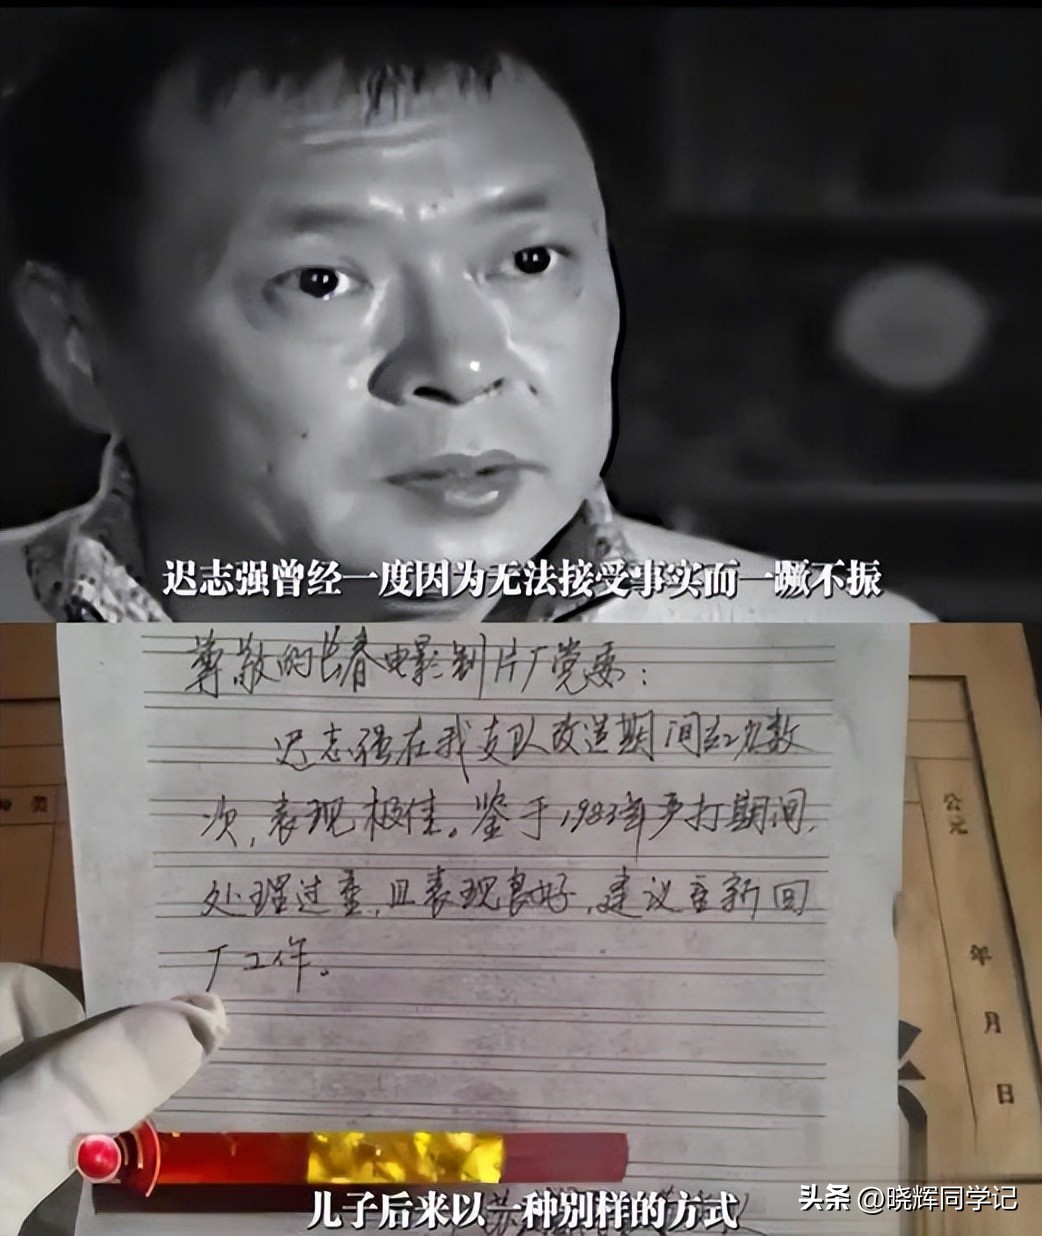 迟志强曾经一度因为无法接受事实而一蹶不振
尊敬的长春电影制片厂党委：
迟志强在我支队改造期间立功数
次，表现极佳。鉴于1983年严打期间，
处理过重，且表现良好，建议重新回
厂工作。
公元
年
月
日
儿子后来以一种别样的方式
头条 @晓辉同学记